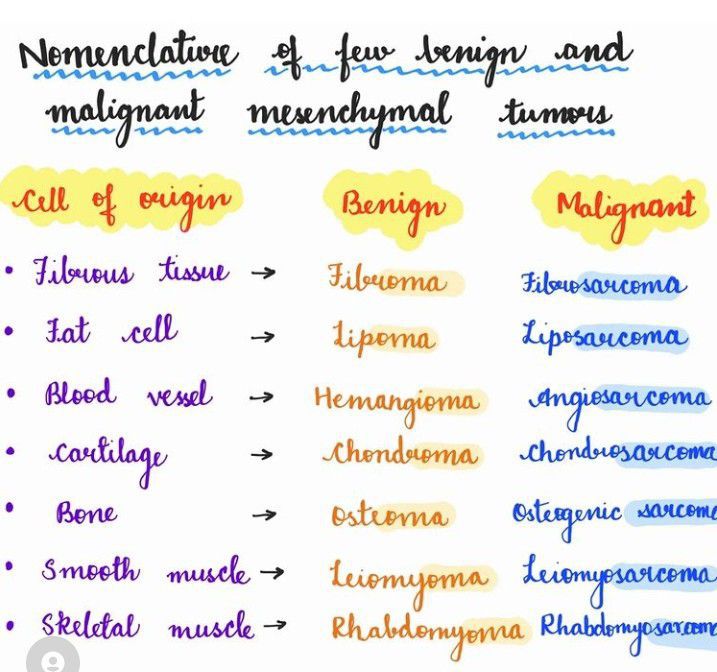 Nomenclature of few benign and
malignant mesenchymal tumors
Cell of origin Benign Malignant
• Fibrous tissue → Fibroma Fibrosarcoma
• Fat cell → Lipoma Liposarcoma
• Blood vessel → Hemangioma Angiosarcoma
• Cartilage → Chondroma Chondrosarcoma
• Bone → Osteoma Osteogenic sarcoma
• Smooth muscle → Leiomyoma Leiomyosarcoma
• Skeletal muscle → Rhabdomyoma Rhabdomyosarcom